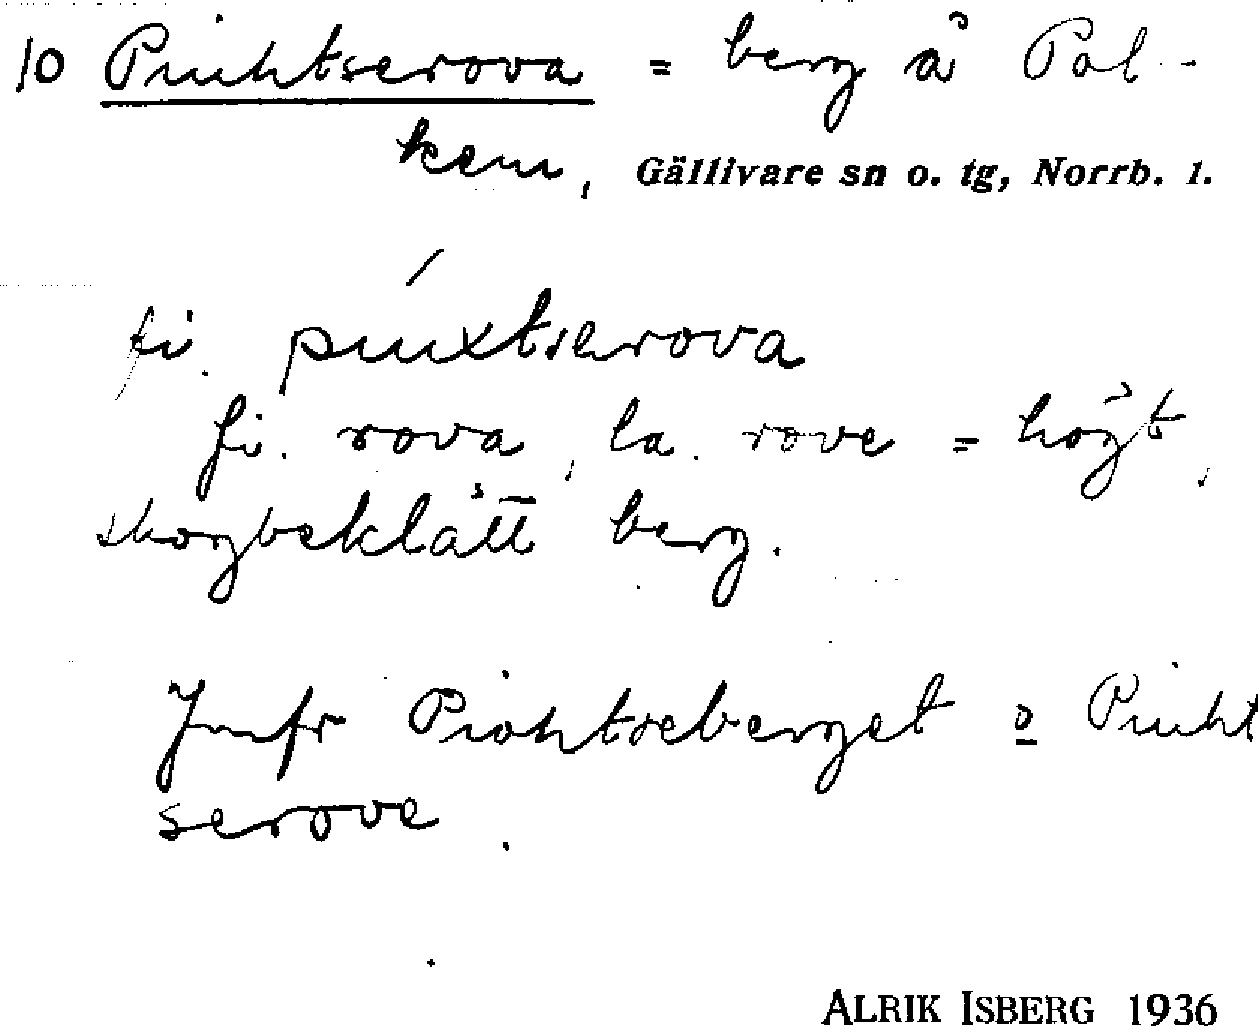 10 Piuhtserova = berg å Pol-
kem, Gällivare sn o. tg, Norrb. l.
fi. piuxtserova
fi. rova, la. rove = högt,
skogbeklätt berg.
Jmfr Piohtseberget o Piuht
serove.
ALRIK ISBERG 1936